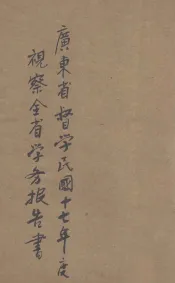 廣東省督學民國十七年度
視察全省學務报告書